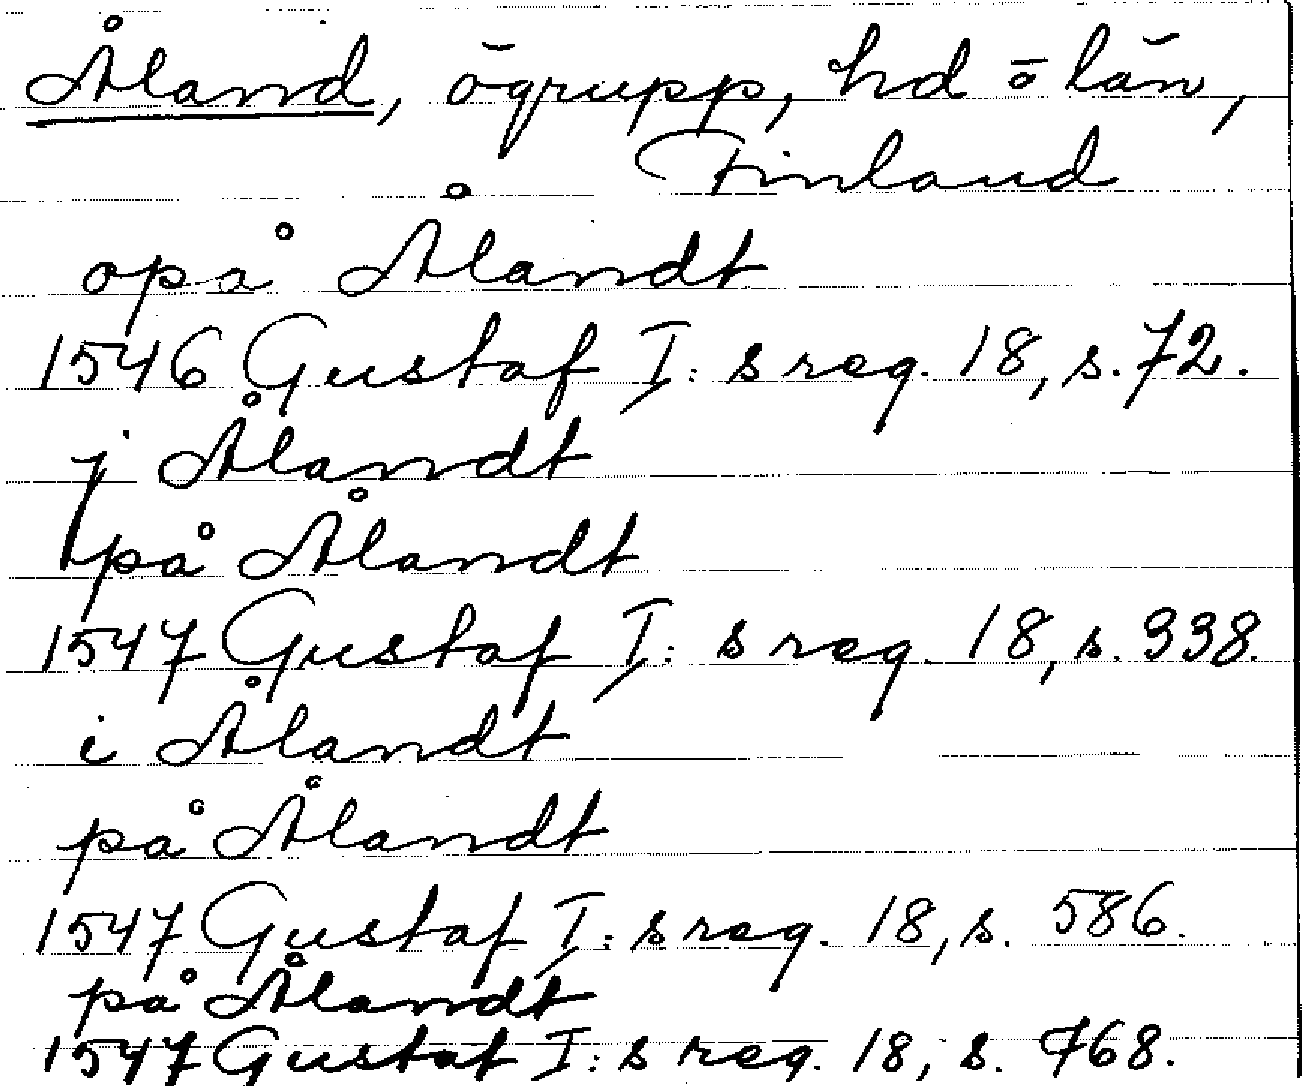 Åland, ögrupp, hd o län,
Finland
opå Ålandt
1546 Gustaf I: s reg. 18, s. 72.
j Ålandt
på Ålandt
1547 Gustaf I: s reg. 18, s. 338.
i Ålandt
på Ålandt
1547 Gustaf I: s reg. 18, s. 586.
på Ålandt
1547 Gustaf I: s reg. 18, s. 768.